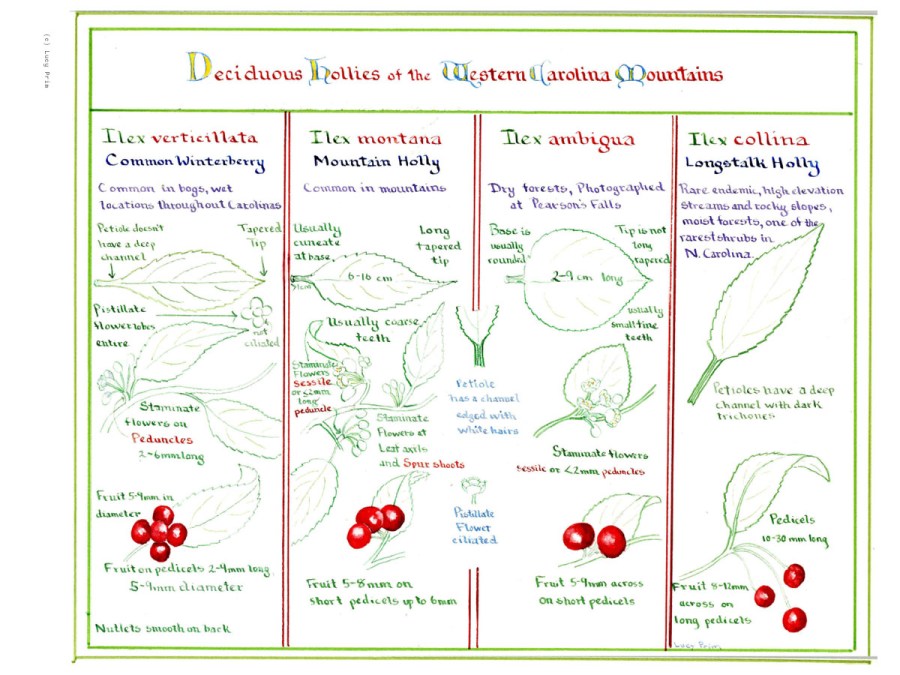 (c) Lucy Prim
Deciduous Hollies of the Western Carolina Mountains
Ilex verticillata
Common Winterberry
Common in bogs, wet
locations throughout Carolinas
Petiole doesn't
have a deep
channel
Tapered
Tip
Pistillate
flower lobes
entire
not
ciliated
Staminate
flowers on
Peduncles
2-6mm long
Fruit 5-9mm in
diameter
Fruit on pedicels 2-4mm long
5-9mm diameter
Nutlets smooth on back
Ilex montana
Mountain Holly
Common in mountains
Usually
cuneate
at base
Long
tapered
tip
6-16 cm
Usually coarse
teeth
Staminate
Flowers
Sessile
or <2mm
long
peduncle
Staminate
Flowers at
Leaf axils
and Spur shoots
Fruit 5-8mm on
short pedicels up to 6mm
Petiole
has a channel
edged with
white hairs
Pistillate
Flower
ciliated
Ilex ambigua
Dry forests, Photographed
at Pearson's Falls
Base is
usually
rounded
Tip is not
long
tapered
2-9 cm long
usually
small fine
teeth
Staminate flowers
sessile or <2mm peduncles
Fruit 5-9mm across
on short pedicels
Ilex collina
Longstalk Holly
Rare endemic, high elevation
streams and rocky slopes,
moist forests, one of the
rarest shrubs in
N. Carolina.
Petioles have a deep
channel with dark
trichomes
Pedicels
10-30 mm long
Fruit 8-12mm
across on
long pedicels
Lucy Prim